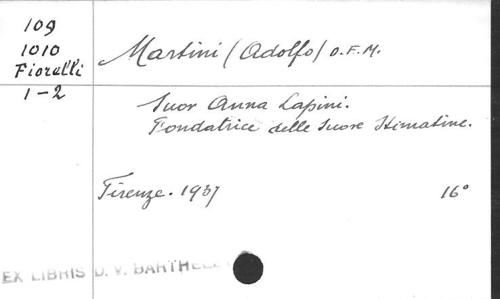 109
1010
Fiorelli
1-2
Martini (Adolfo) O.F.M.
Suor Anna Lapini.
Fondatrice delle Suore Stimatine.
Firenze. 1937 16°
EX LIBRIS D. V. BARTHEL